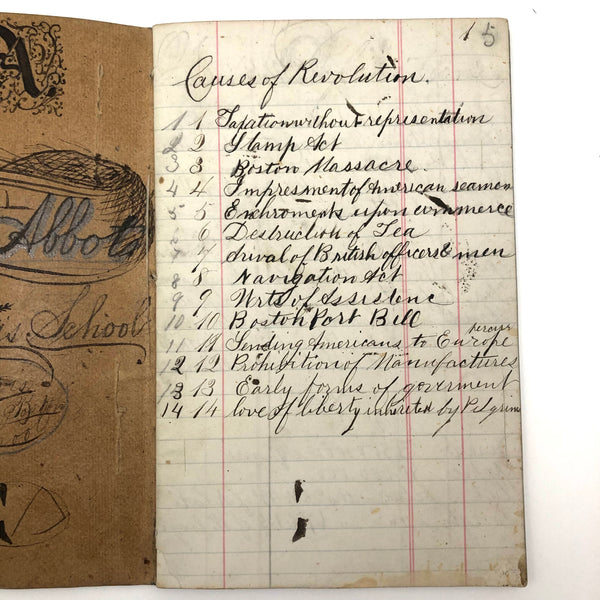 A.
Abbots
School
1 5
Causes of Revolution.
1 1 Taxation without representation
2 2 Stamp Act
3 3 Boston Massacre.
4 4 Impresment of American seamen
5 5 Enchroments upon commerce
6 6 Destruction of Tea
7 7 Arival of British officers & men
8 8 Navigation Act
9 9 Wrts of Assistenc
10 10 Boston Port Bill
11 11 Sending Americans to Europe
12 12 Prohibition of Manufactures
13 13 Early forms of goverment
14 14 love of liberty inherited by Pilgrims